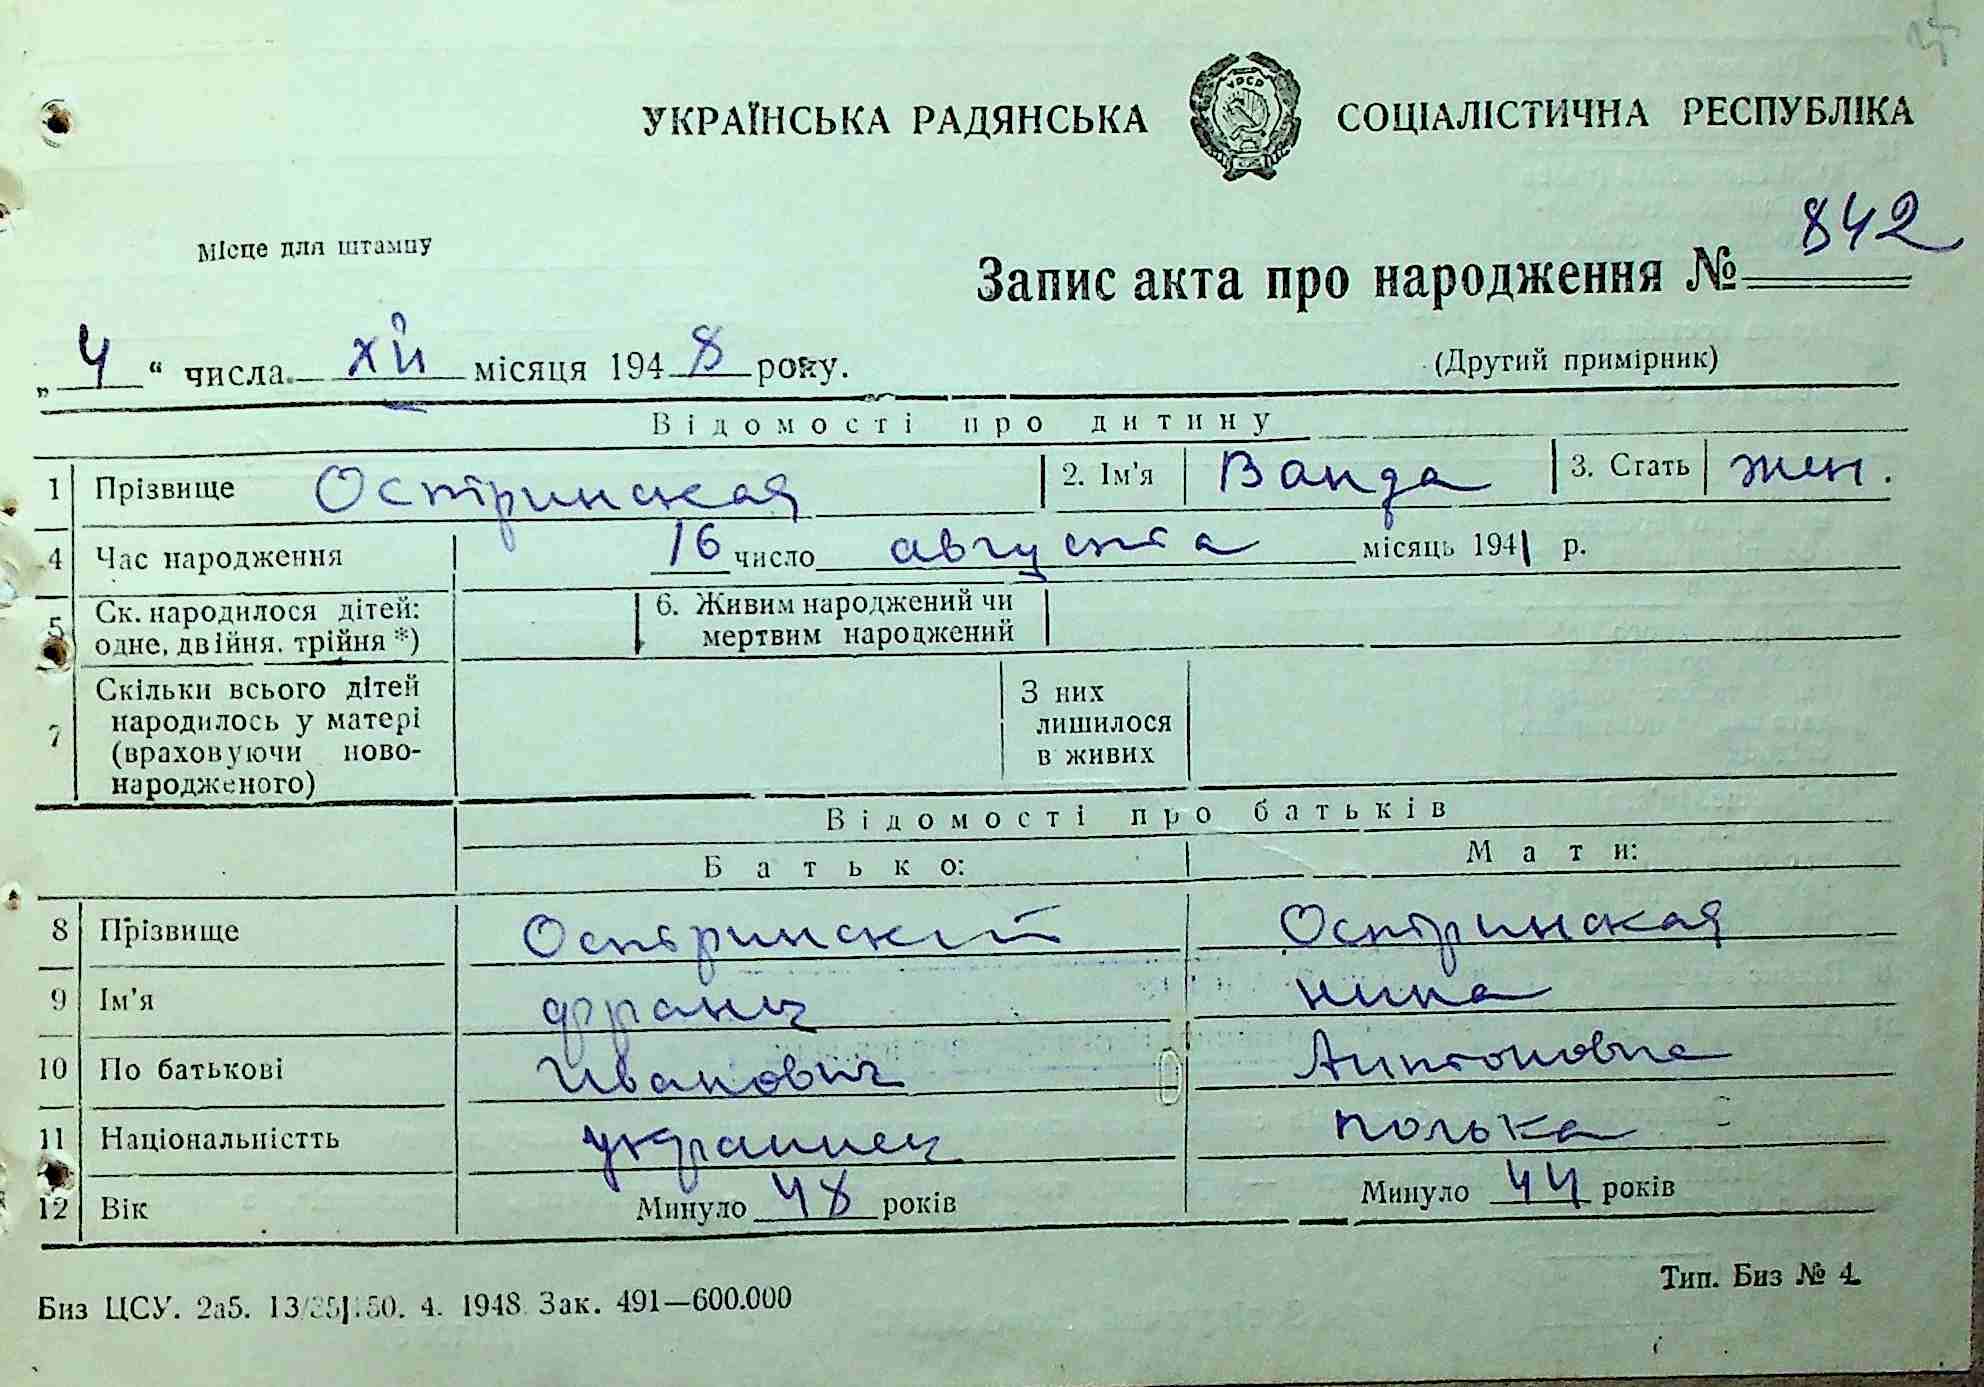 УКРАЇНСЬКА РАДЯНСЬКА СОЦІАЛІСТИЧНА РЕСПУБЛІКА
УРСР
Місце для штампу
Запис акта про народження № 842
„ 4 “ числа XII місяця 1948 року.
(Другий примірник)
Відомості про дитину
1 Прізвище Остринская 2. Ім'я Ванда 3. Стать жен.
4 Час народження 16 число августа місяць 1941 р.
5 Ск. народилося дітей: одне, двійня, трійня *) 6. Живим народжений чи мертвим народжений
7 Скільки всього дітей народилось у матері (враховуючи ново-народженого) З них лишилося в живих
Відомості про батьків
Батько: Мати:
8 Прізвище Остринский Остринская
9 Ім'я франц нина
10 По батькові Иванович Антоновна
11 Національністть украинец полька
12 Вік Минуло 48 років Минуло 44 років
Биз ЦСУ. 2а5. 4. 1948 Зак. 491—600.000
Тип. Биз № 4